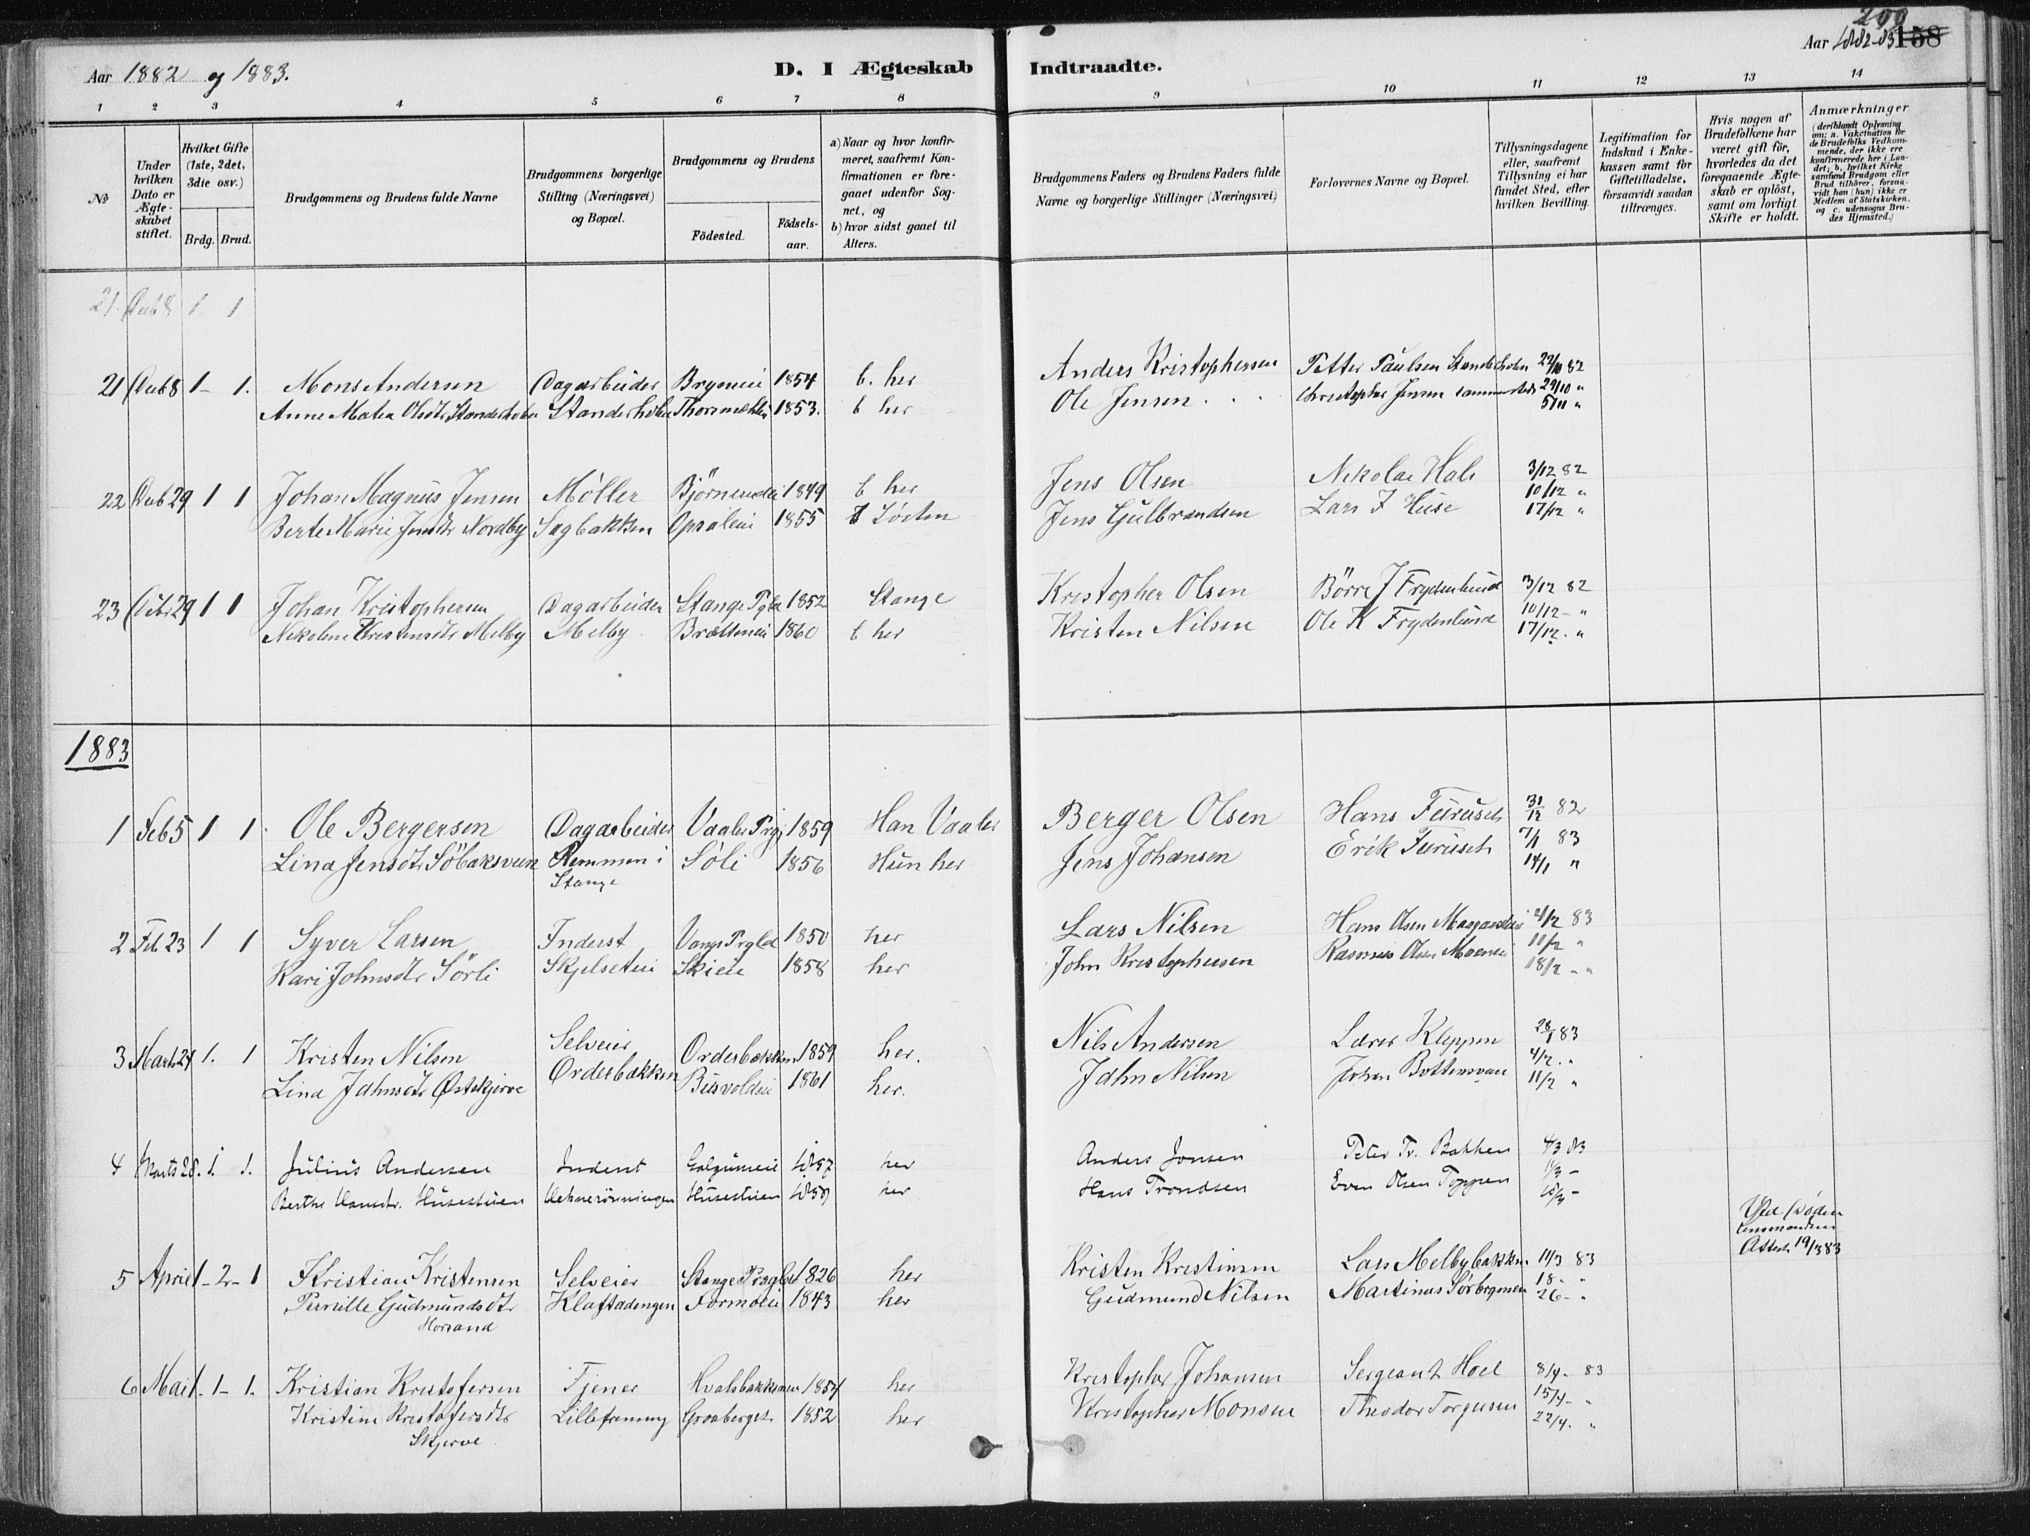 Aar 1882 og 1883.
D. I Ægteskab Indtraadte.
Aar 1882-83 158
200
1 2 3 4 5 6 7 8 9 10 11 12 13 14
No
Under hvilken Dato er Ægteskabet stiftet.
Hvilket Gifte (1ste, 2det, 3die osv.)
Brdg. Brud.
Brudgommens og Brudens fulde Navne
Brudgommens borgerlige Stilling (Næringsvei) og Bopæl.
Brudgommens og Brudens
Födested.
Födselsaar.
a) Naar og hvor konfirmeret, saafremt Konfirmationen er foregaaet udenfor Sognet, og
b) hvor sidst gaaet til Alters.
Brudgommens Faders og Brudens Faders fulde Navne og borgerlige Stillinger (Næringsvei)
Forlovernes Navne og Bopæl.
Tillysningsdagene eller, saafremt Tillysning ei har fundet Sted, efter hvilken Bevilling.
Legitimation for Indskud i Enkekassen samt for Giftetilladelse, forsaavidt saadan tiltrænges.
Hvis nogen af Brudefolkene har været gift för, hvorledes da det foregaaende Ægteskab er oplöst, samt om lovligt Skifte er holdt.
Anmærkninger
(deriblandt Oplysning om: a. Vakcination for de Brudefolks Vedkommende, der ikke ere konfirmerede her i Landet; b. hvilket Kirkesamfund Brudgom eller Brud tilhörer, forsaavidt han (hun) ikke er Medlem af Statskirken, og c. udensogns Brudes Hjemsted.)
21. 8 1 1
21 8 1 - 1. Mons Andersen Dagarbeider 1854 b. her Anders Kristophersen Petter Paulsen 22/10 82
Anne Olsdtr 1853. b her Ole Jensen . . Christopher Jensen 29/10 "
5/11 "
22 29 1 1 Johan Magnus Jensen Møller 1849 b her Jens Olsen Nikolai Hals 3/12 82
Berte Marie Jensdtr Nordby Sagbakken Opsaleie 1855 Løiten Jens Gulbrandsen Lars J Huse 10/12 "
17/12 "
23 29 1 1 Johan Kristophersen Dagarbeider Stange Pgld 1852 Stange Kristopher Olsen Børre J Frydenlund 3/12 82
Nikoline Kristensdtr Melby Melby 1860 b her Kristen Nilsen Ole K Frydenlund 10/12 - "
17/12. "
1883
1 Feb 5 1 1. Ole Bergersen Dagarbeider Vaaler Prgj 1859 Han Vaaler Berger Olsen Hans Furuset 31/12 82
Lina Jensdtr Remmen i Søli 1856 Hun her Jens Johansen Erik Furuset 7/1 83
Stange 14/1 "
2 Feb 23 1 1 Syver Larsen Inderst Vangs Prgld 1850 her Lars Nilsen Hans Olsen 4/2 83
Kari Johnsdtr Sørli 1858 her John Kristophersen Rasmus Olsen 11/2 "
18/2 - "
3 Marts 1. 1 Kristen Nilsen Selveier Ordesbakken 1859 her. Nils Andersen Lærer Kleppen 28/1 83
Lina Østskjerve Ordesbakken 1861 her. Nilsen Johan 4/2. "
11/2 "
4 Marts 28. 1. 1. Julius Andersen Inderst 1857 her Anders Jonsen Peter Tr. Bakken 4/3 83
Berthe Hansdtr. Husestuen Husestuen 1859 her Hans Trondsen Even Olsen Toppen 11/3 -
5 April 1 - 2 - 1 Kristian Kristensen Selveier Stange Prægld 1826 her Kristen Kristensen Lars Melbybakken 11/3 83
Pernille Gudmundsdtr Kloftadengen Formoeie 1843 her Gudmund Nilsen Martinus 18 - "
26 - "
Attest 19/3 83
6 Mai 1. - 1 - 1. Kristian Kristofersen Tjener 1854 her Kristopher Johansen Sergeant Hoel 8/4 - 83
Kristine Kristofersdtr Graaberget 1852 her Kristopher Monsen Theodor Torgersen 15/4 - "
Skjerve 22/4. "